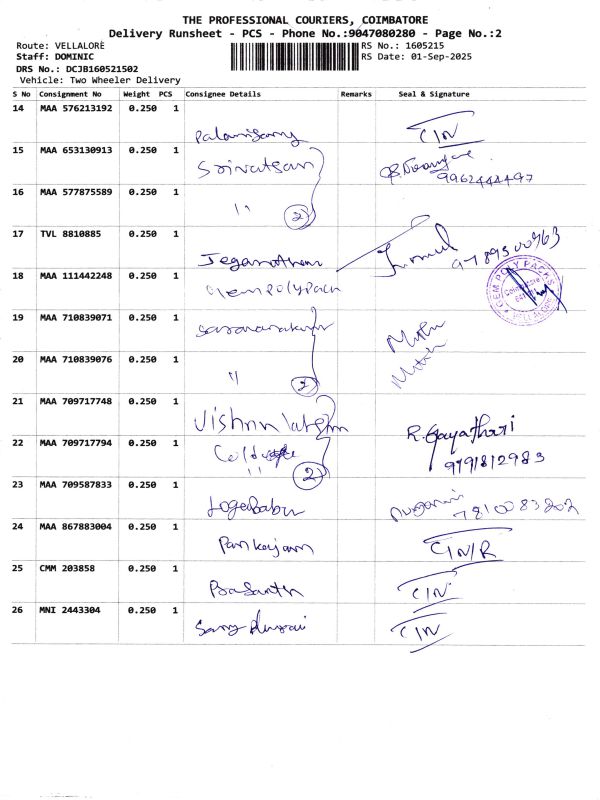 THE PROFESSIONAL COURIERS, COIMBATORE
Delivery Runsheet - PCS - Phone No.:9047080280 - Page No.:2
Route: VELLALORE
RS No.: 1605215
Staff: DOMINIC
RS Date: 01-Sep-2025
DRS No.: DCJB160521502
Vehicle: Two Wheeler Delivery
S No Consignment No Weight PCS Consignee Details Remarks Seal & Signature
14 MAA 576213192 0.250 1
Palanisamy CIN
15 MAA 653130913 0.250 1
Srivatsan
9962444497
16 MAA 577875589 0.250 1
" 2
17 TVL 8810885 0.250 1
Jeganathan
18 MAA 111442248 0.250 1
Gem polypack
GEM POLY PACKS
VELLALORE
19 MAA 710839071 0.250 1
Saravanakumar Muthu
20 MAA 710839076 0.250 1
" 2 Muthu
21 MAA 709717748 0.250 1
R. Gayathari
22 MAA 709717794 0.250 1
" 2 9791812983
23 MAA 709587833 0.250 1
Logeababu 7810083202
24 MAA 867883004 0.250 1
Pankajam CIN/R
25 CMM 203858 0.250 1
Basanth CIN
26 MNI 2443304 0.250 1
CIN